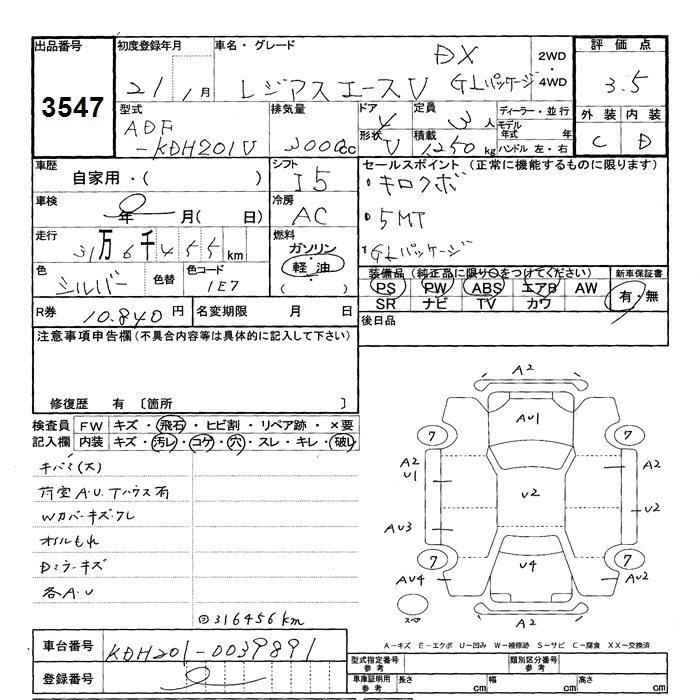 出品番号 初度登録年月 車名・グレード 評価点
3547
21年 1月 レジアスエースV DX GLパッケージ 2WD・4WD 3.5
型式 排気量 ドア 定員 ディーラー・並行 外装 内装
ADF-KDH201V 3000cc 4 3人 モデル年式 年 C D
形状 V 積載 1250kg ハンドル 左・右
車歴 シフト セールスポイント (正常に機能するものに限ります)
自家用・( ) I5 ・キロクボ
車検 冷房
年 月( 日) AC ・5MT
走行 燃料
31万6千455km ガソリン・軽油 ・GLパッケージ
( )
色 色替 色コード 装備品(純正品に限り○をつけてください) 新車保証書
シルバー 1E7 PS PW ABS エアB AW 有・無
SR ナビ TV カワ
R券 10.840円 名変期限 月 日 後日品
注意事項申告欄(不具合内容等は具体的に記入して下さい)
修復歴 有 〔箇所 〕
検査員 FW キズ・飛石・ヒビ割・リペア跡・×要
記入欄 内装 キズ・汚レ・コゲ・穴・スレ・キレ・破レ
キバミ(大)
荷室A.U.Tハウス有
Wカバーキズ・ワレ
オイルもれ
Dミラーキズ
各A.U
316456km
A2
AU1
7 7
A2 A2
U1
U2 U2
AU3
7 7
U4
AU4 AU2
スペア
A2
A-キズ E-エクボ U-凹み W-補修跡 S-サビ C-腐食 XX-交換済
車台番号 KDH201-0039891
型式指定番号 参考 類別区分番号 参考
登録番号
車庫証明用 参考 長さ cm 幅 cm 高さ cm